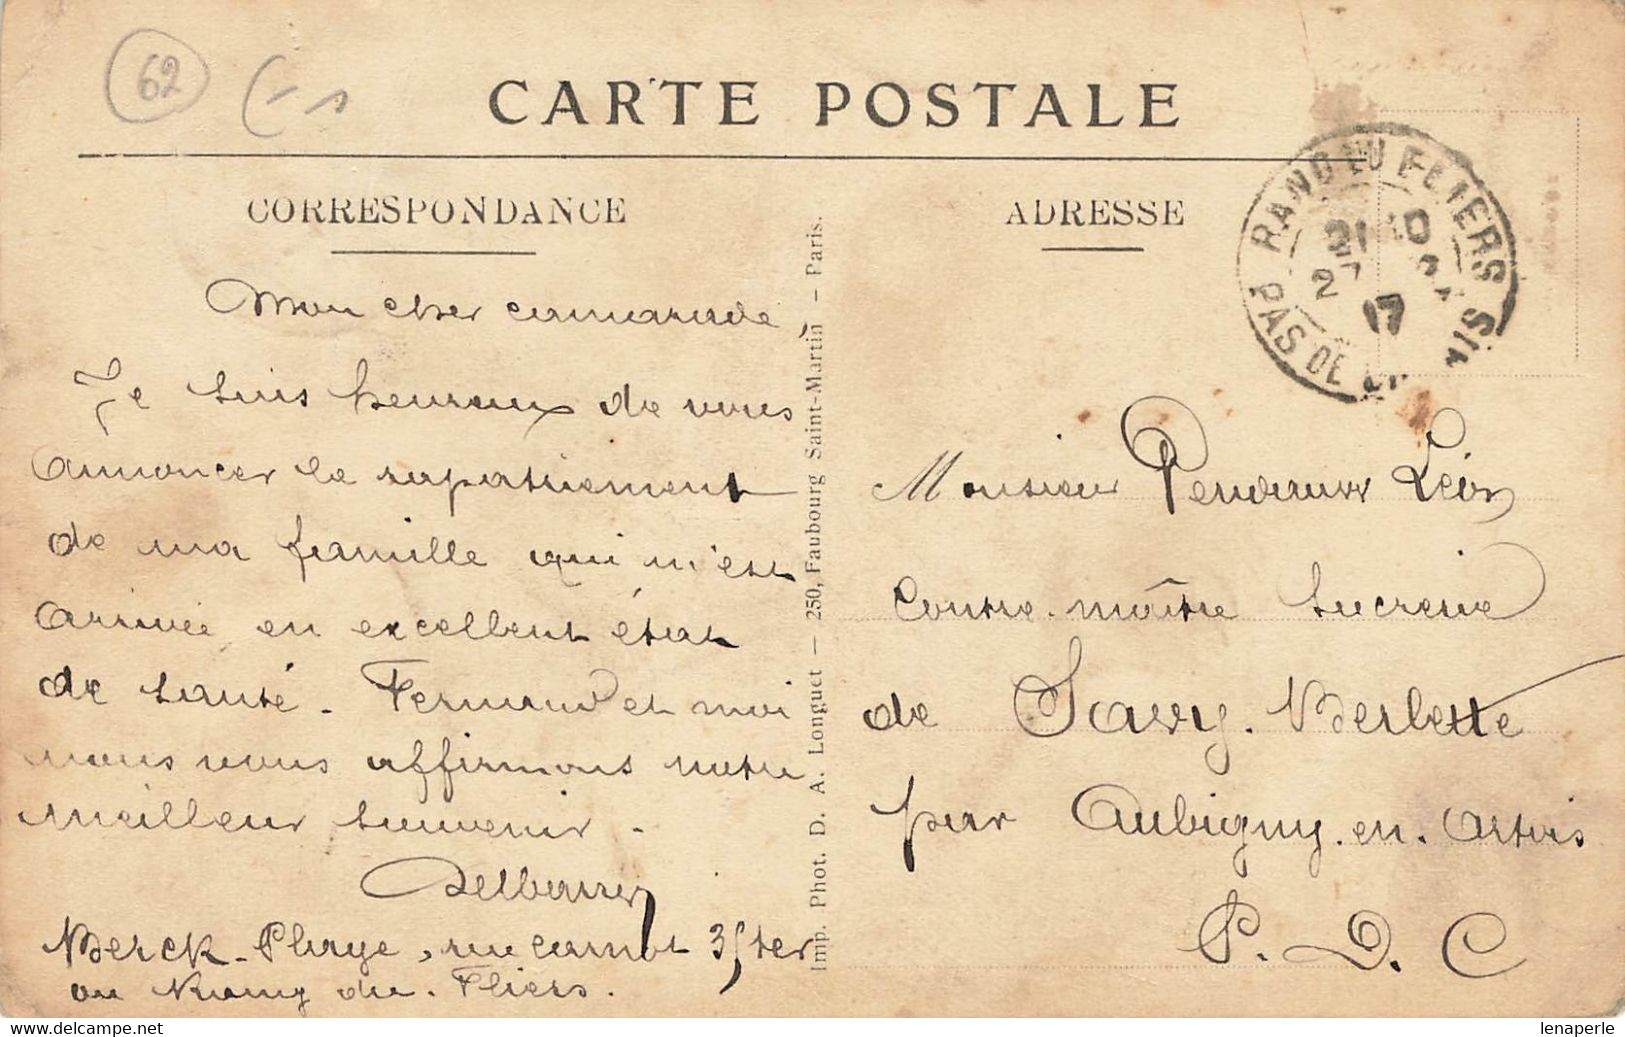 62
CARTE POSTALE
CORRESPONDANCE
Mon cher camarade
Je suis heureux de vous
annoncer le rapatriement
de ma famille qui m'est
arrivée en excellent état
de santé. Fernand et moi
nous vous affirmons notre
meilleur souvenir.
Berck-Plage, rue Carnot 35ter
ou Rang du Fliers.
Imp. Phot. D. A. Longuet — 250, Faubourg Saint-Martin — Paris.
ADRESSE
RANG DU FLIERS
2 17
PAS DE CALAIS
Monsieur Léon
Contre-maître sucrerie
de Savy-Berlette
par Aubigny-en-Artois
P.D.C
www.delcampe.net
lenaperle